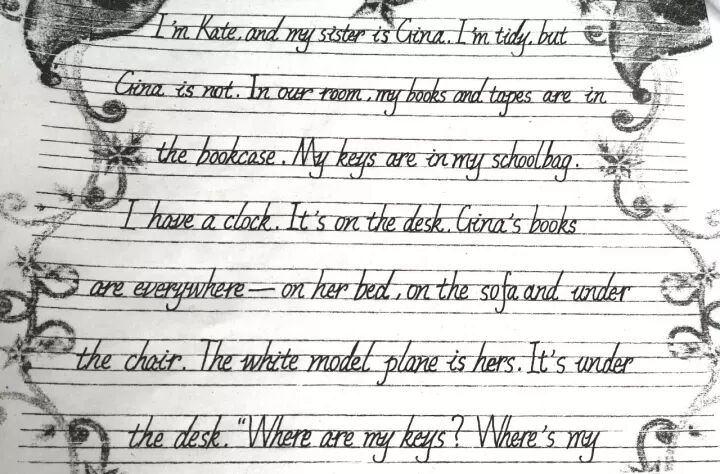 I'm Kate, and my sister is Gina. I'm tidy, but
Gina is not. In our room, my books and tapes are in
the bookcase. My keys are in my schoolbag.
I have a clock. It's on the desk. Gina's books
are everywhere — on her bed, on the sofa and under
the chair. The white model plane is hers. It's under
the desk. "Where are my keys? Where's my